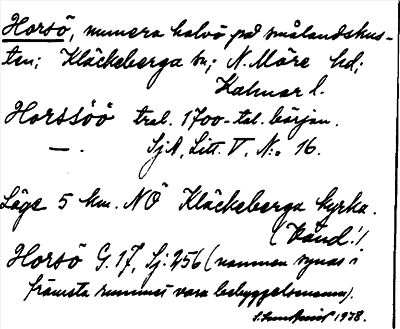 Horsö, numera halvö på smålandskus-
ten; Kläckeberga sn; N. Möre hd;
Kalmar l.
Horssöö trol. 1700-tal. början.
—. SjA, Litt. V, N:o 16.
Läge 5 km. NÖ Kläckeberga kyrka.
(Vänd!).
Horsö G. 17, Sj: 256 (namnen synas i
främsta rummet vara bebyggelsenamn).
1978.